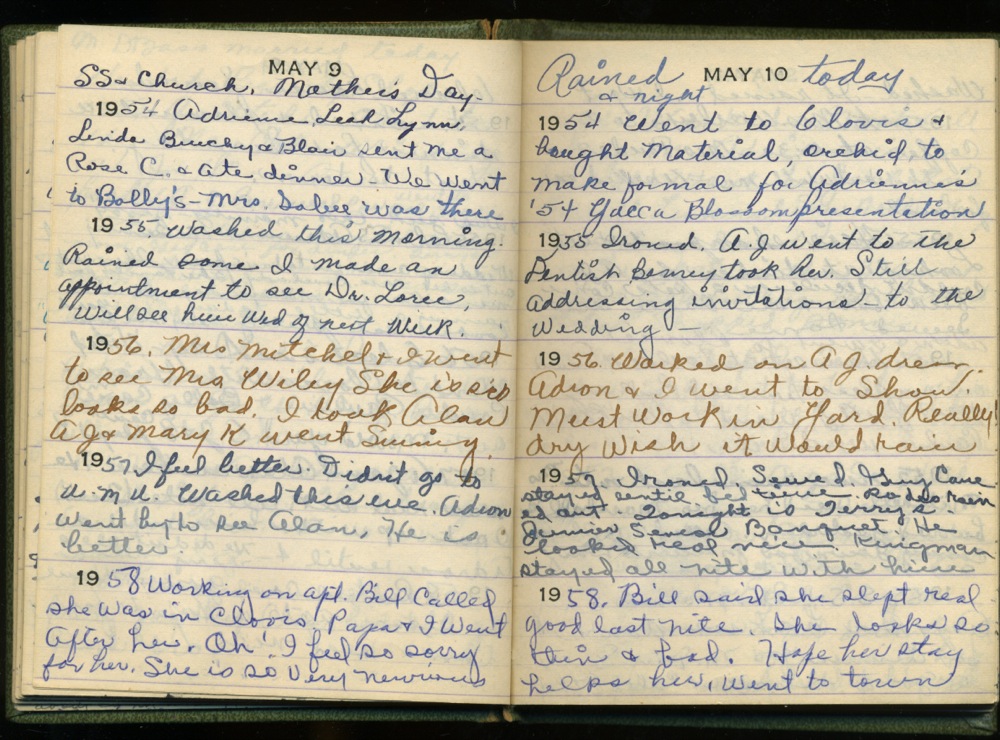 MAY 9
SS & Church. Mothers Day-
1954 Adrienne, Leah Lynn,
Linda & Blair sent me a
Rose C. & ate dinner - We went
to Bobby's - Mrs. was there
1955. Washed this morning.
Rained some I made an
appointment to see Dr. Loree,
Will see him Wed of next Week.
1956. Mrs Mitchel & I went
to see Mrs Wiley She is sick
looks so bad. I took Alan
A J & Mary K went Swimg
1957 I feel better. Didn't go to
W.M.U. Washed this eve. Adron
went by to see Alan, He is
better.
1958 Working on apt. Bill Called
she was in Clovis Papa & I Went
After her. Oh! I feel so sorry
for her. She is so Very
Rained MAY 10 today
& night
1954 Went to Clovis &
bought Material, orchid, to
make formal for Adrienne's
'54 Yucca Blossom presentation
1955 Ironed. A.J went to the
Dentist took her. Still
addressing invitations - to the
Wedding -
1956. Worked on A J. dress.
Adron & I went to Show.
Must Work in Yard. Really
dry Wish it Would rain
1957 Ironed. Sewed. Guy Cave
stayed until bed time. Rodeo rain
ed out. Tonight is Terry's
Junior Senior Banquet. He
looked real nice. Kingman
stayed all nite with him
1958. Bill said she slept real
good last nite. She looks so
thin & bad. Hope her stay
helps her, Went to town